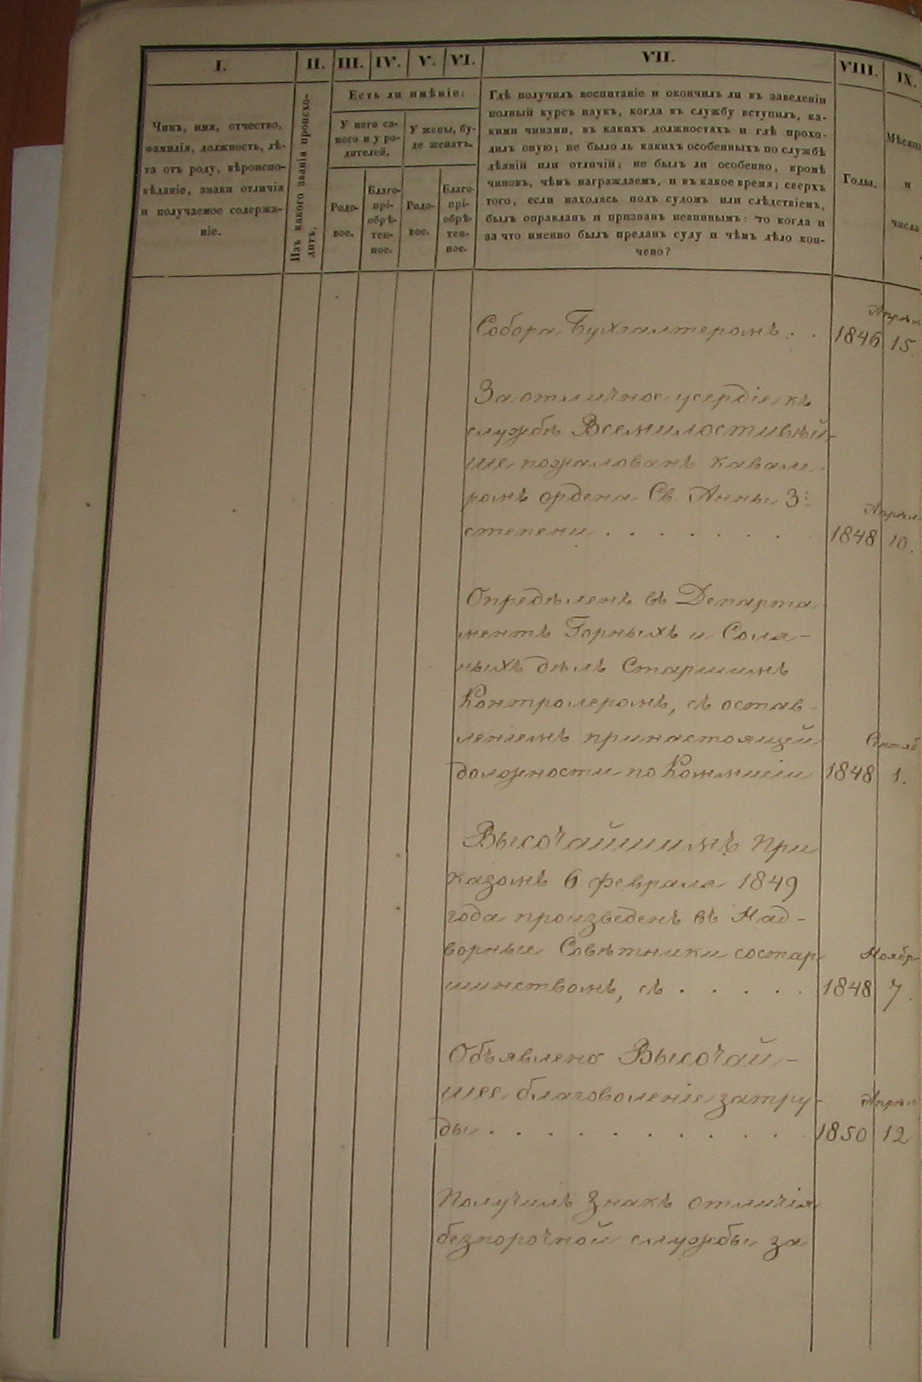 I. II. III. IV. V. VI. VII. VIII. IX.
Чинъ, имя, отчество,
фамилія, должность, лѣ-
та отъ роду, вѣроиспо-
вѣданіе, знаки отличія
и получаемое содержа-
ніе.
Изъ какого званія происхо-
дитъ.
Есть ли имѣніе:
У него са-
мого и у ро-
дителей.
У жены, бу-
де женатъ.
Родо-
вое.
Благо-
прі-
обрѣ-
тен-
ное.
Родо-
вое.
Благо-
прі-
обрѣ-
тен-
ное.
Гдѣ получилъ воспитаніе и окончилъ ли въ заведеніи
полный курсъ наукъ, когда въ службу вступилъ, ка-
кими чинами, въ какихъ должностяхъ и гдѣ прохо-
дилъ оную; не было ль какихъ особенныхъ по службѣ
дѣяній или отличій; не былъ ли особенно, кромѣ
чиновъ, чѣмъ награждаемъ, и въ какое время; сверхъ
того, если находясь подъ судомъ или слѣдствіемъ,
былъ оправданъ и признанъ невиннымъ: то когда и
за что именно былъ преданъ суду и чѣмъ дѣло кон-
чено?
Годы.
Мѣсяцы
и
числа
Собора Бухгалтеромъ . . 1846 Апрѣл 15.
За отличное усердіе къ
службѣ Всемилостивѣй-
ше пожалованъ Кавале-
ромъ ордена Св. Анны 3й
степени . . . . . . . 1848 Апрѣл 10.
Опредѣленъ въ Департа-
ментъ Горныхъ и Соля-
ныхъ дѣлъ Старшимъ
Контролеромъ, съ остав-
леніемъ при настоящей
должности по Коммиссіи 1848 Сентяб 1.
Высочайшимъ при
казомъ 6 февраля 1849
года произведенъ въ Над-
ворные Совѣтники со стар-
шинствомъ, съ . . . . . 1848 Ноябр 7.
Объявлено Высочай-
шее благоволеніе за тру-
ды . . . . . . . . . . 1850 Апрѣл 12
Получилъ Знакъ отличія
безпорочной службы за